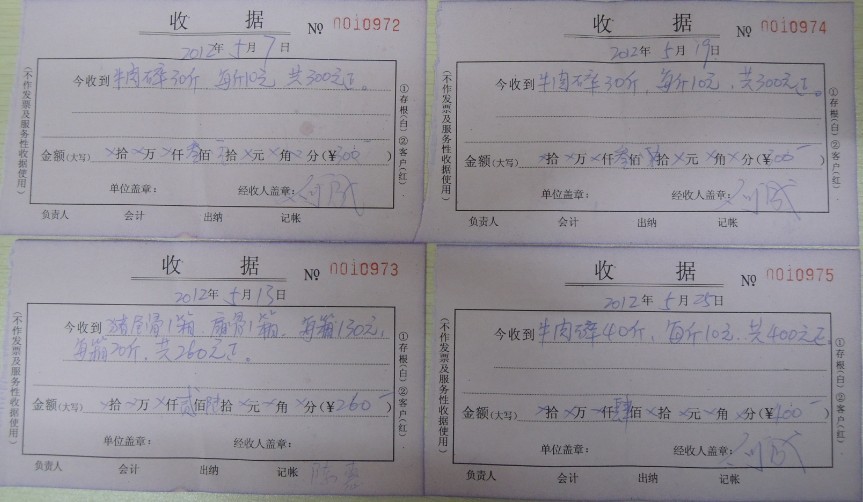 收 据
№ 0010972
2012年5月7日
今收到 牛肉碎30斤 每斤10元 共300元正。
金额(大写) ×拾×万×仟叁佰 拾×元×角×分(¥300-)
单位盖章: 经收人盖章:
负责人 会计 出纳 记帐
(不作发票及服务性收据使用)
①存根(白)②客户(红).
收 据
№ 0010974
2012年5月19日
今收到 牛肉碎30斤,每斤10元,共300元正。
金额(大写) ×拾×万×仟叁佰 拾×元×角×分(¥300-)
单位盖章: 经收人盖章:
负责人 会计 出纳 记帐
(不作发票及服务性收据使用)
①存根(白)②客户(红).
收 据
№ 0010973
2012年5月13日
今收到 猪 骨1箱、扇骨1箱、每箱130元,
每箱20斤,共260元正。
金额(大写) ×拾×万×仟贰佰陆拾×元×角×分(¥260-)
单位盖章: 经收人盖章:
负责人 会计 出纳 记帐
(不作发票及服务性收据使用)
①存根(白)②客户(红).
收 据
№ 0010975
2012年5月25日
今收到 牛肉碎40斤,每斤10元,共400元正。
金额(大写) ×拾×万×仟肆佰×拾×元×角×分(¥400-)
单位盖章: 经收人盖章:
负责人 会计 出纳 记帐
(不作发票及服务性收据使用)
①存根(白)②客户(红).